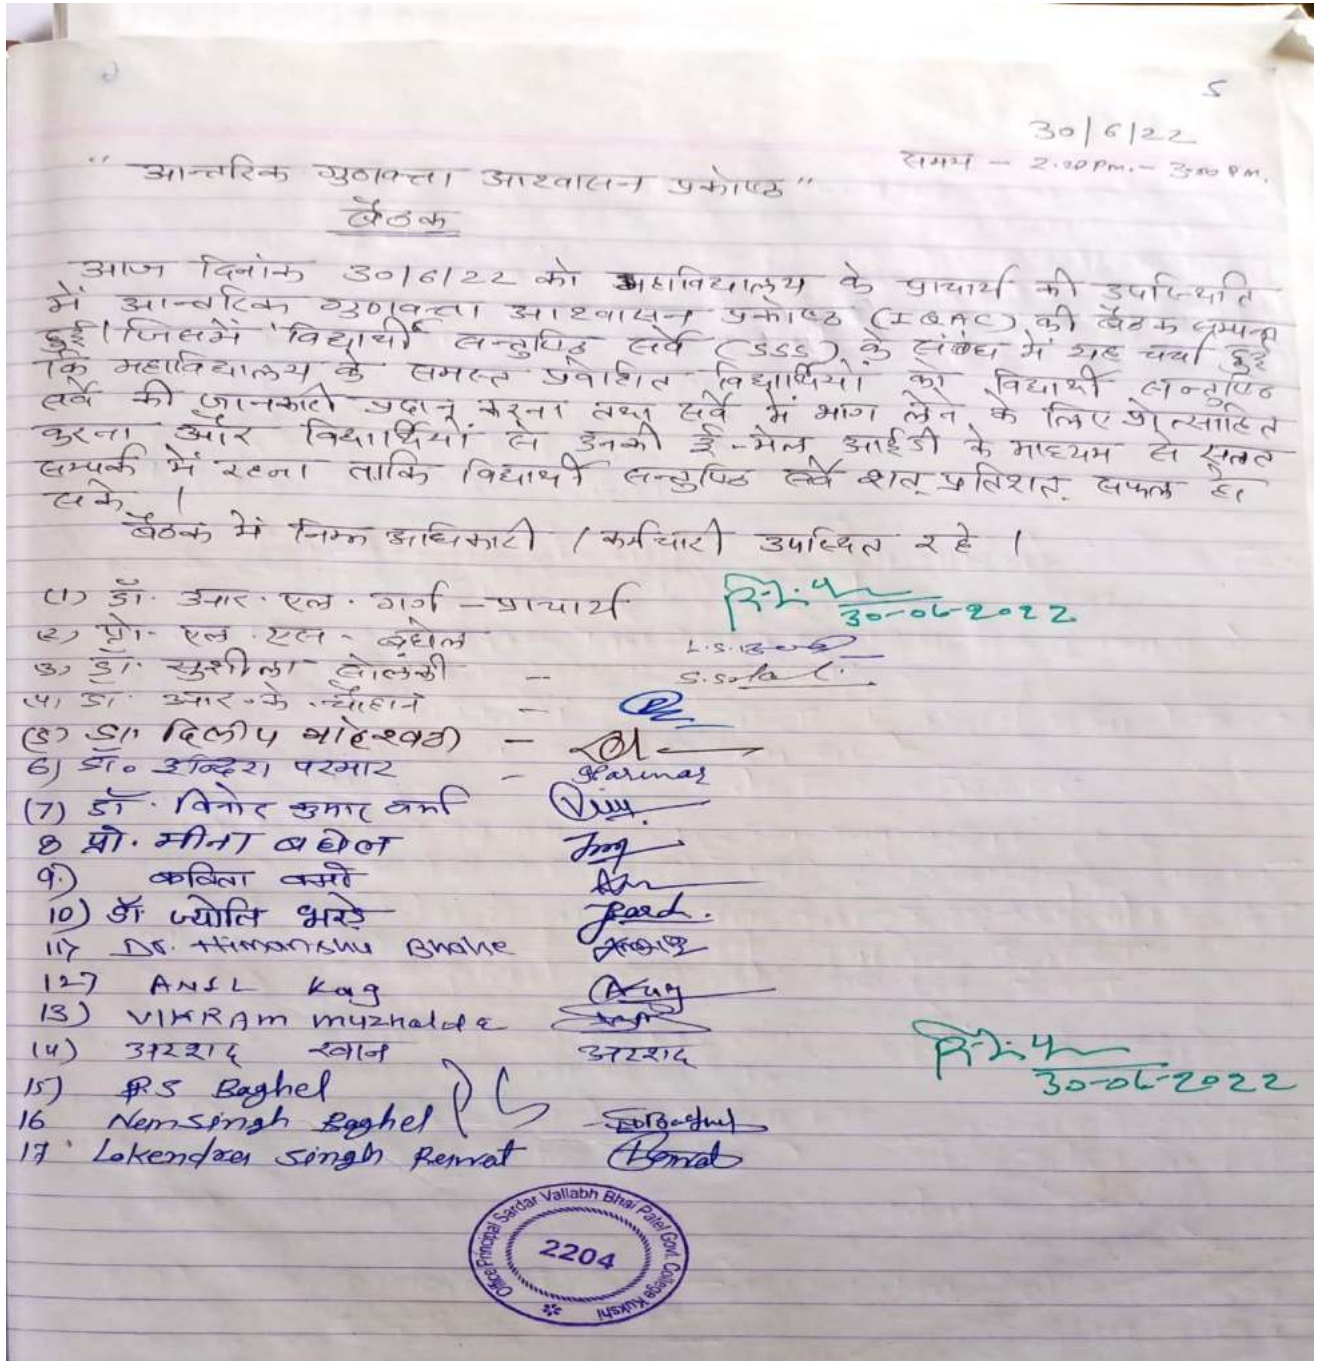 5
30/6/22
समय - 2:00 pm. - 3:00 pm.
"आन्तरिक गुणवत्ता आश्वासन प्रकोष्ठ"
बैठक
आज दिनांक 30/6/22 को महाविद्यालय के प्राचार्य की उपस्थिति
में आन्तरिक गुणवत्ता आश्वासन प्रकोष्ठ (IQAC) की बैठक सम्पन्न
हुई। जिसमें 'विद्यार्थी सन्तुष्टि सर्वे (SSS) के संबंध में यह चर्चा हुई
कि महाविद्यालय के समस्त प्रवेशित विद्यार्थियों को विद्यार्थी सन्तुष्टि
सर्वे की जानकारी प्रदान करना तथा सर्वे में भाग लेने के लिए प्रोत्साहित
करना और विद्यार्थियों से उनकी ई-मेल आईडी के माध्यम से सतत
सम्पर्क में रहना ताकि विद्यार्थी सन्तुष्टि सर्वे शत् प्रतिशत् सफल हो
सके।
बैठक में निम्न अधिकारी / कर्मचारी उपस्थित रहे।
(1) डॉ. आर. एल. गर्ग - प्राचार्य 30-06-2022
(2) प्रो. एल. एस. बघेल
(3) डॉ. सुशीला सोलंकी -
(4) डॉ. आर. के. चौहान -
(5) डॉ. दिलीप माहेश्वरी -
6) डॉ. इन्दिरा परमार - Parmar
(7) डॉ. विनोद कुमार वर्मा
8 प्रो. मीना बघेल
9.) कविता वर्मा
10) डॉ. ज्योति भरडे
11) Dr. Himanshu
12) ANIL Kag
13) VIKRAM muzhalde
14) अरशद खान अरशद
15) RS Baghel
16 Nemsingh Baghel
17 Lokendra Singh Rewat
30-06-2022
Office Principal Sardar Vallabh Bhai Patel Govt. College Kukshi
2204